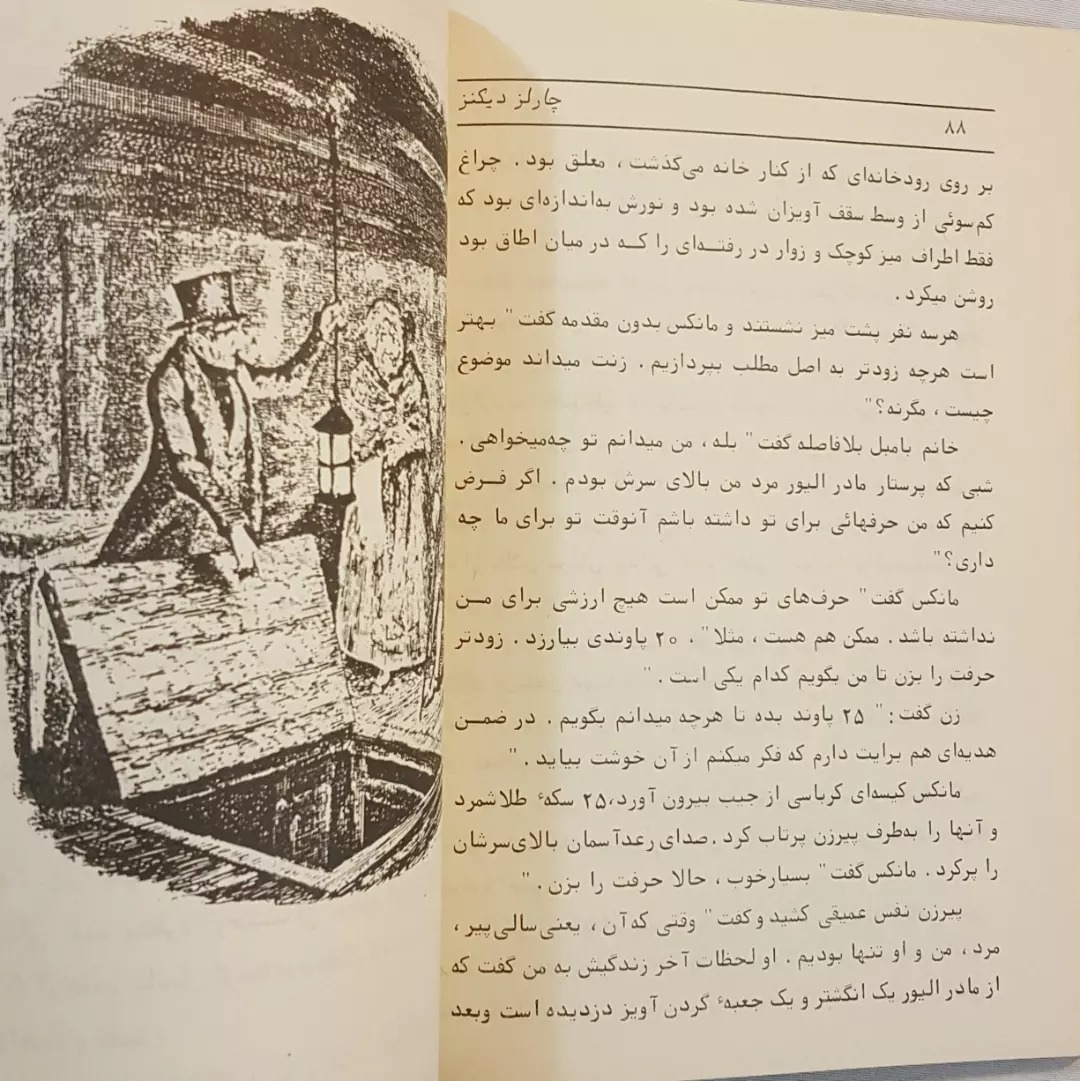 چارلز دیکنز
۸۸
بر روی رودخانه‌ای که از کنار خانه می‌گذشت ، معلق بود . چراغ
کم‌سوئی از وسط سقف آویزان شده بود و نورش به‌اندازه‌ای بود که
فقط اطراف میز کوچک و زوار در رفته‌ای را که در میان اطاق بود
روشن میکرد .
هرسه نفر پشت میز نشستند و مانکس بدون مقدمه گفت " بهتر
است هرچه زودتر به اصل مطلب بپردازیم . زنت میداند موضوع
چیست ، مگرنه؟ "
خانم بامبل بلافاصله گفت " بله ، من میدانم تو چه‌میخواهی .
شبی که پرستار مادر الیور مرد من بالای سرش بودم . اگر فرض
کنیم که من حرفهائی برای تو داشته باشم آنوقت تو برای ما چه
داری؟ "
مانکس گفت " حرف‌های تو ممکن است هیچ ارزشی برای من
نداشته باشد . ممکن هم هست ، مثلا " ، ۲۰ پاوندی بیارزد . زودتر
حرفت را بزن تا من بگویم کدام یکی است . "
زن گفت : " ۲۵ پاوند بده تا هرچه میدانم بگویم . در ضمن
هدیه‌ای هم برایت دارم که فکر میکنم از آن خوشت بیاید . "
مانکس کیسه‌ای کرباسی از جیب بیرون آورد، ۲۵ سکهٔ طلاشمرد
و آنها را به‌طرف پیرزن پرتاب کرد . صدای رعدآسمان بالای‌سرشان
را پرکرد . مانکس گفت " بسیارخوب ، حالا حرفت را بزن . "
پیرزن نفس عمیقی کشید و گفت " وقتی که آن ، یعنی سالی پیر ،
مرد ، من و او تنها بودیم . او لحظات آخر زندگیش به من گفت که
از مادر الیور یک انگشتر و یک جعبهٔ گردن آویز دزدیده است وبعد